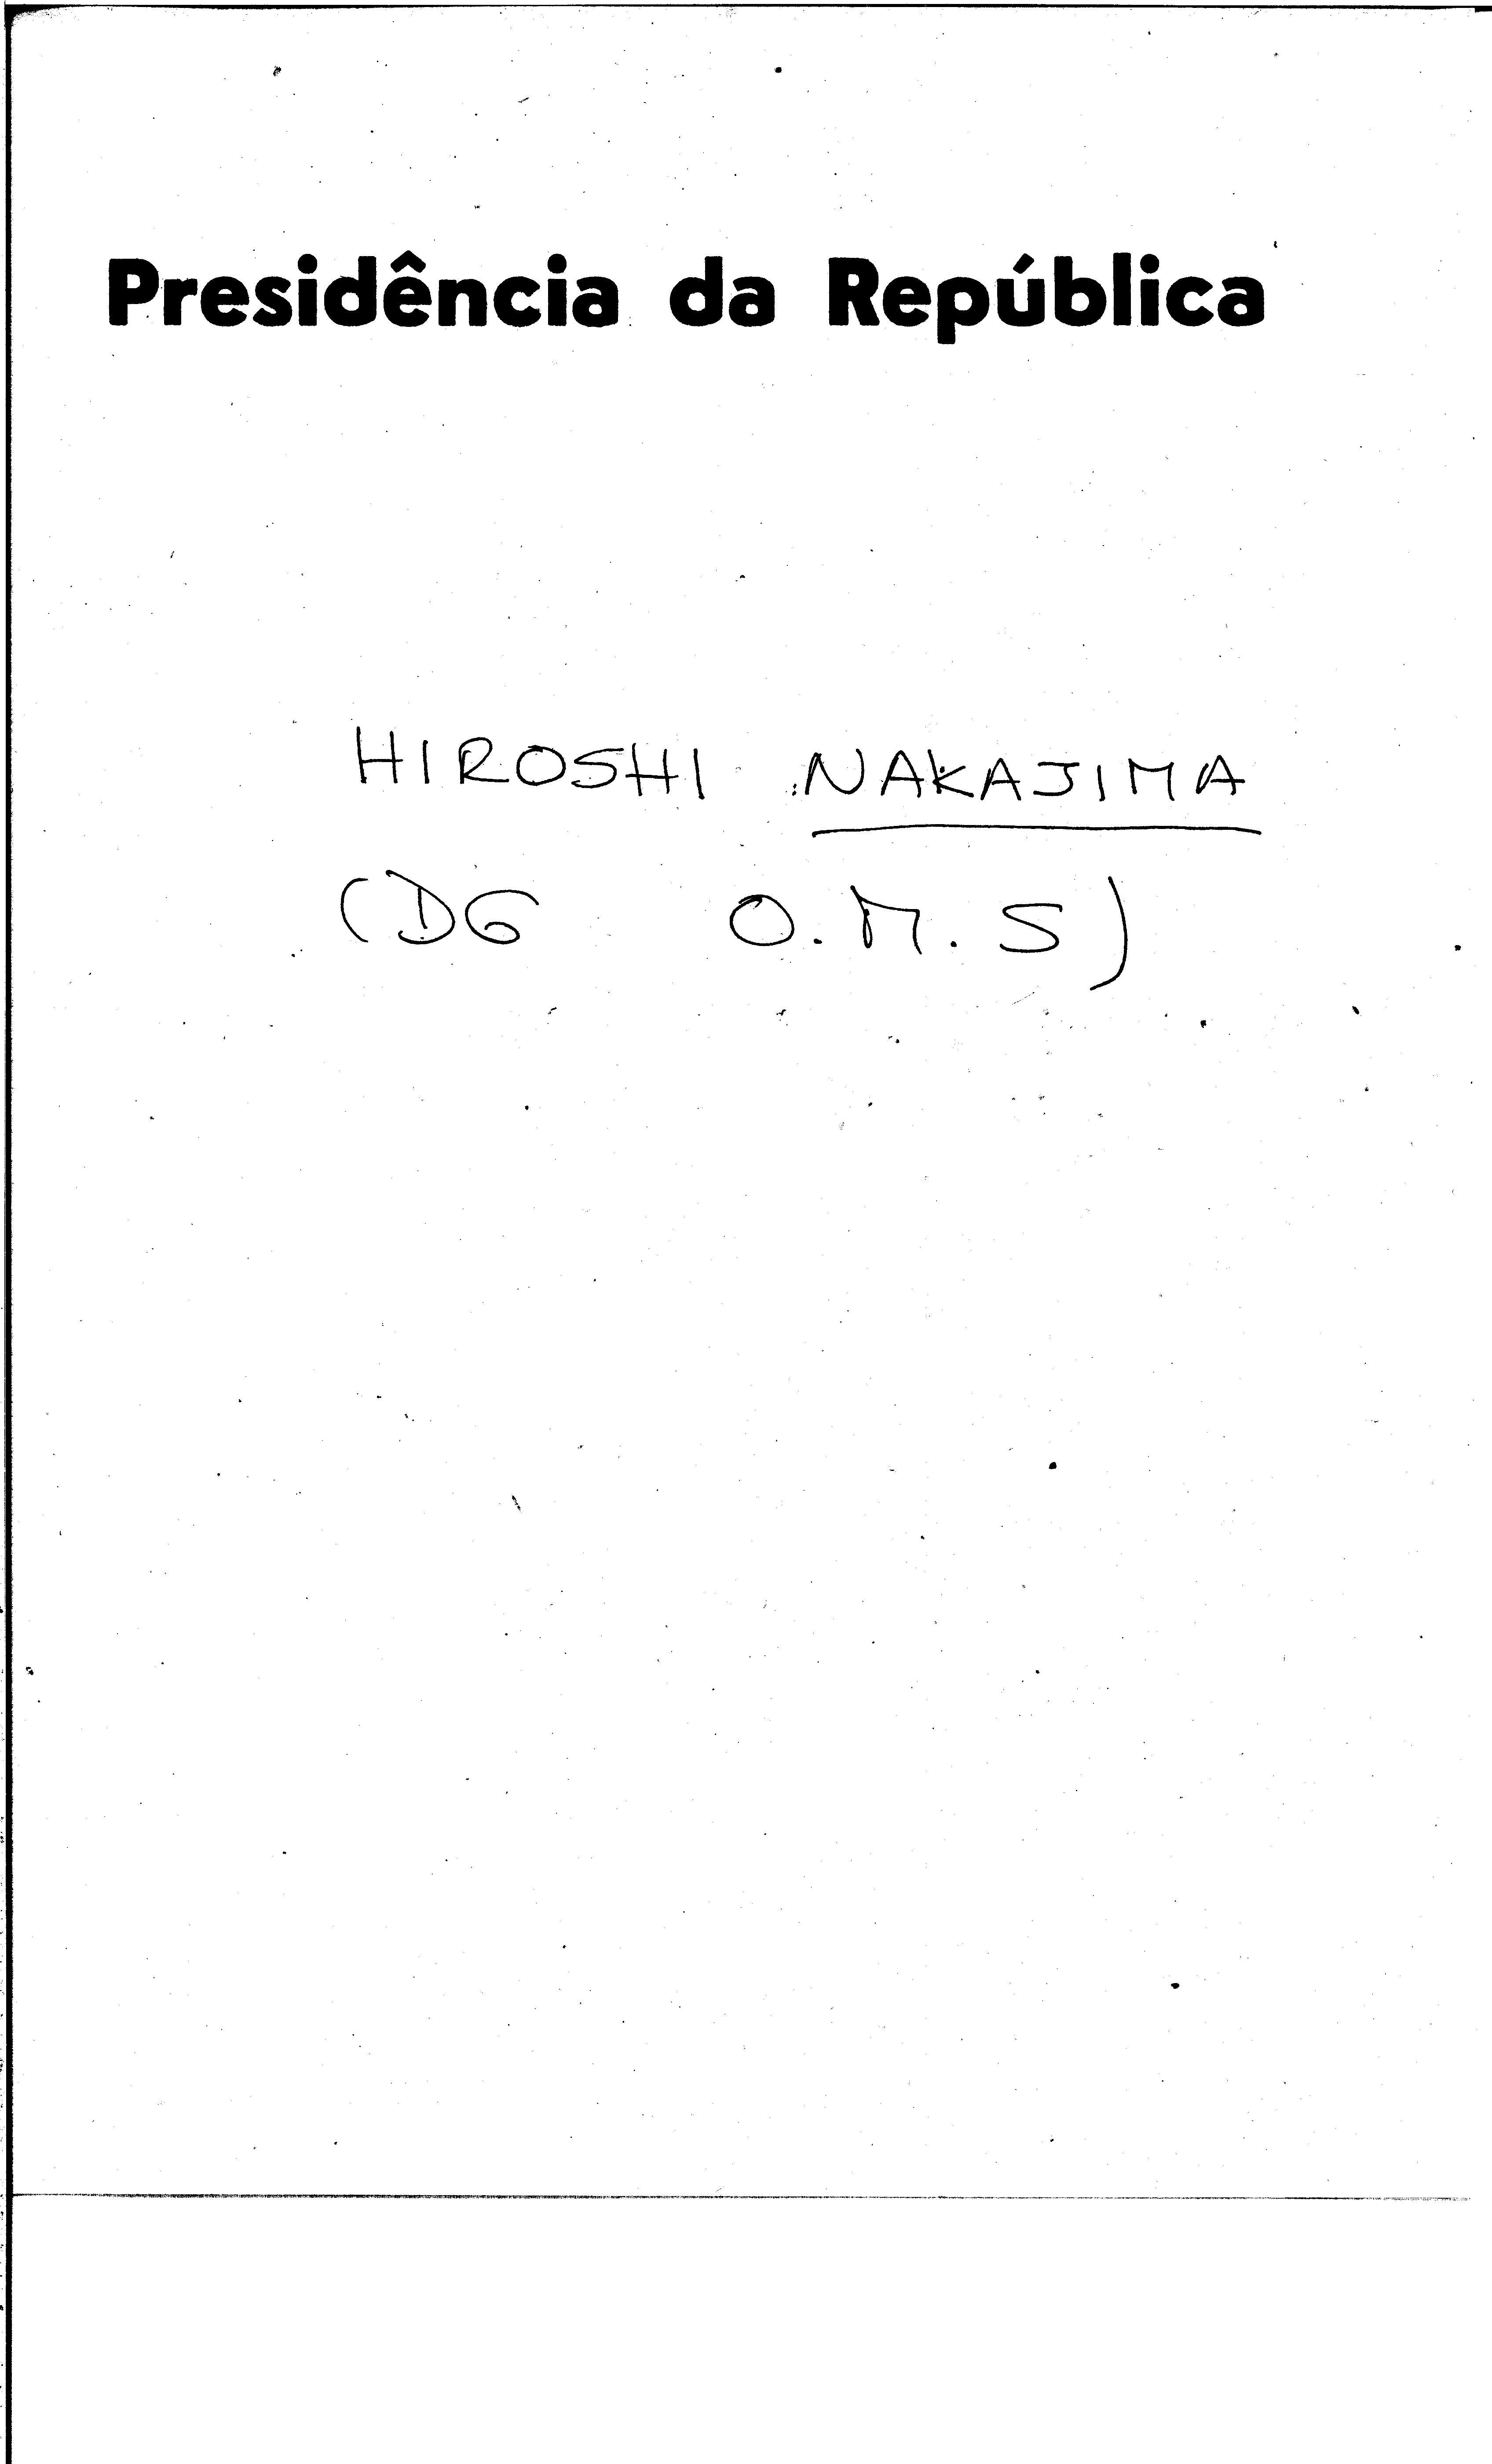 Presidência da República
HIROSHI NAKAJIMA
(DG O.M.S)